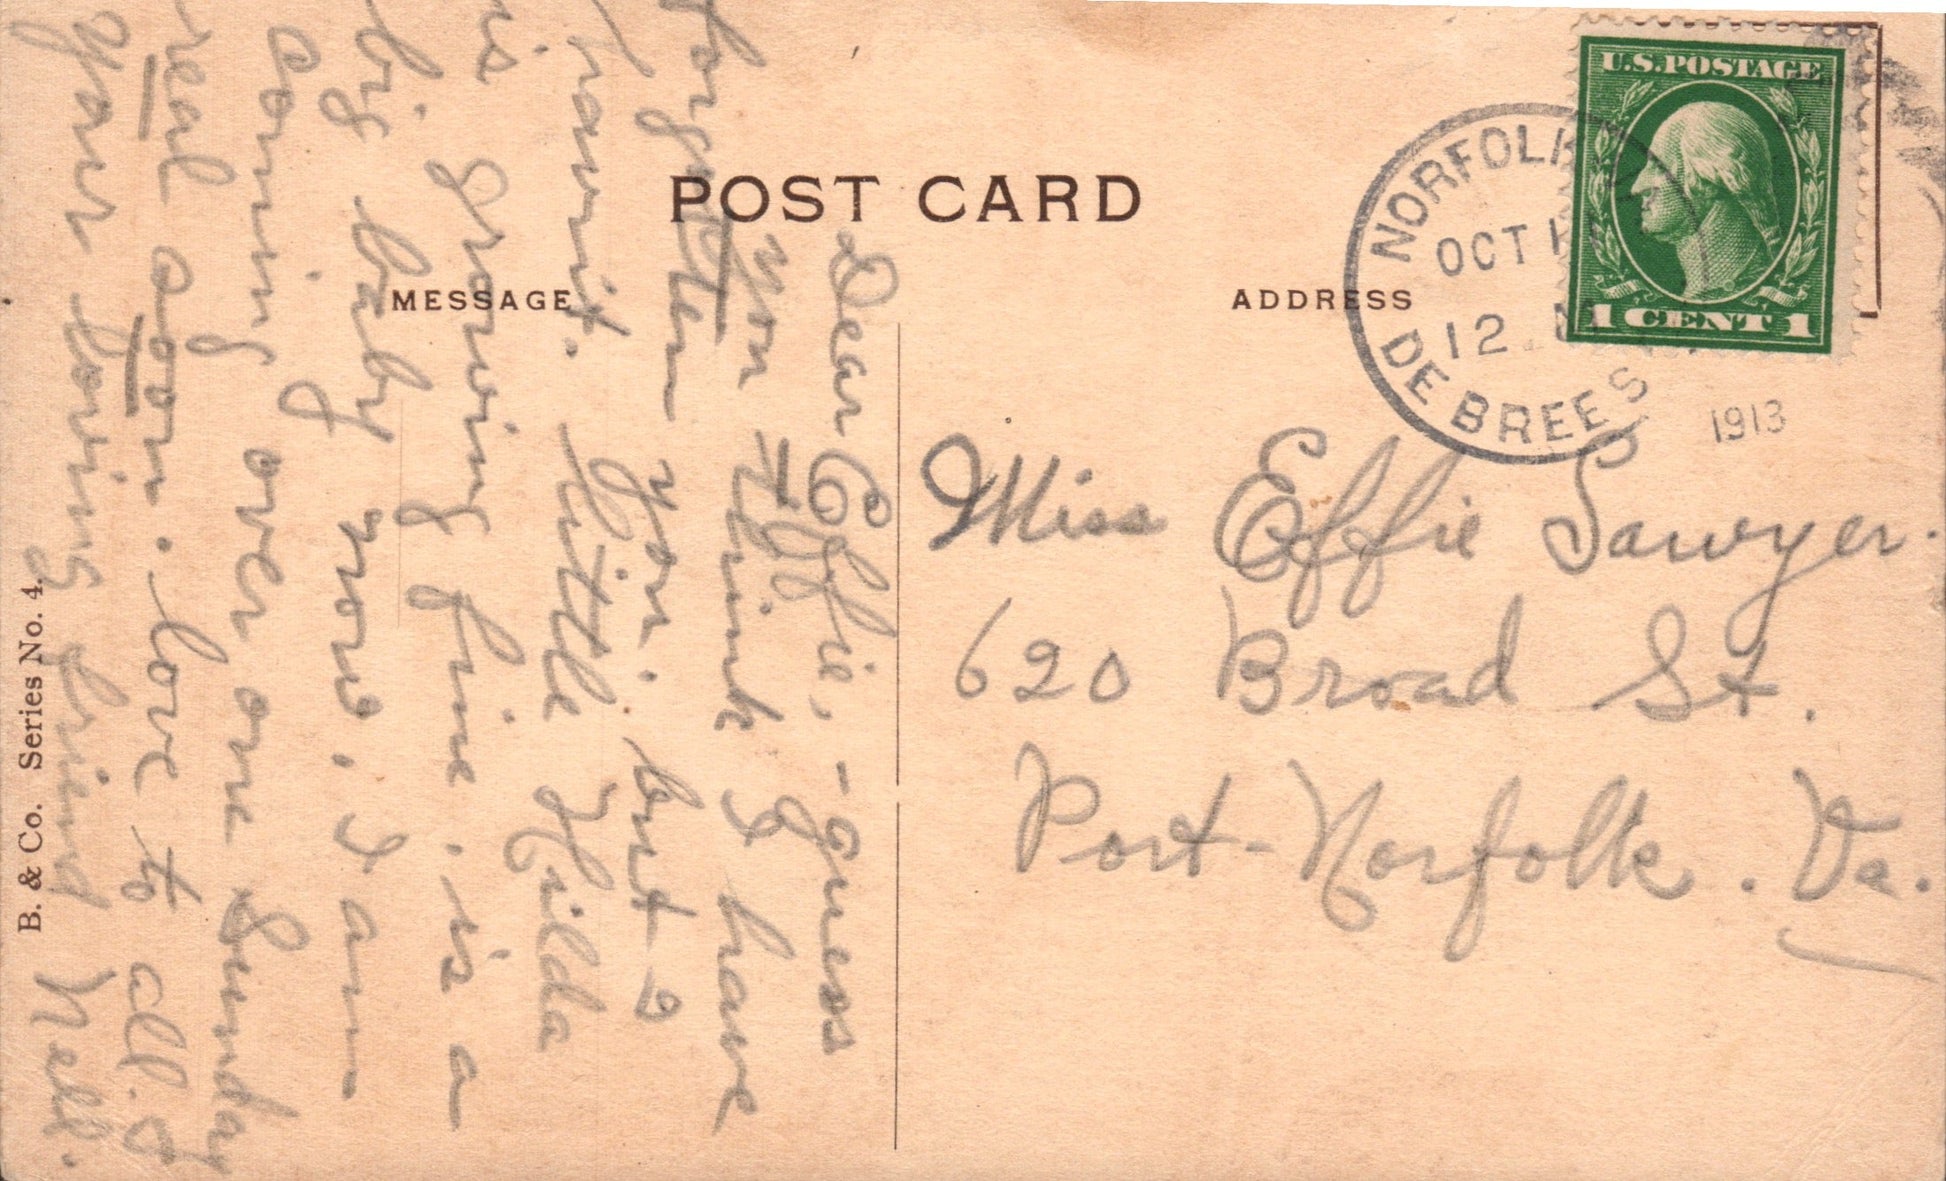 POST CARD
MESSAGE
ADDRESS
U.S. POSTAGE
1 CENT 1
NORFOLK, VA
OCT
12 M
1913
DE BREE S
Miss Effie Sawyer.
620 Broad St.
Port-Norfolk. Va.
Dear Effie, - guess
you think I have
forgotten you. but I
havn't. Little Hilda
is growing fine. is a
big baby now. I am
coming over one Sunday
real soon. love to all.
Your loving friend Nell.
B. & Co. Series No. 4.